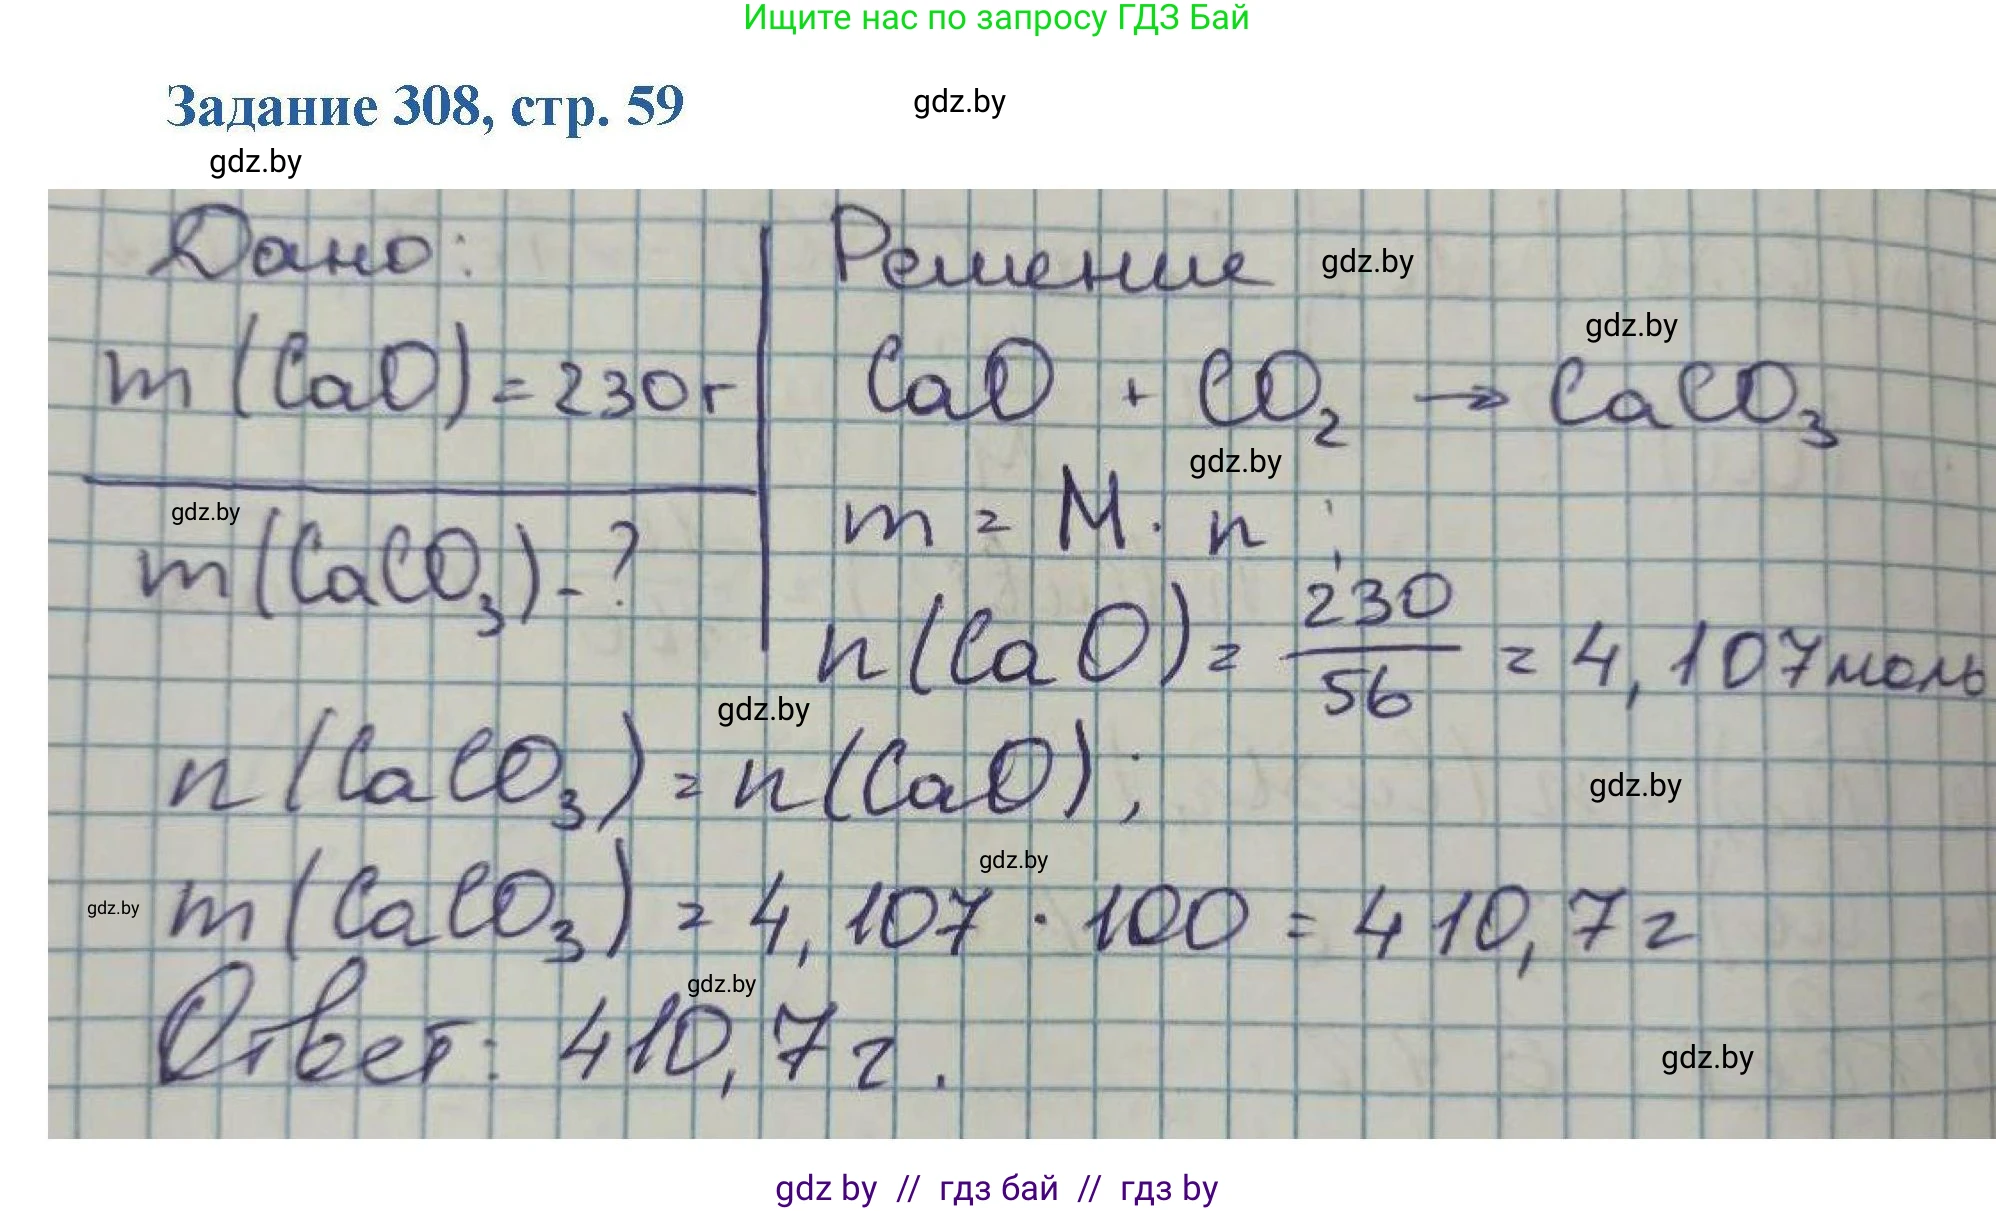 Ищите нас по запросу ГДЗ Бай
Задание 308, стр. 59
gdz.by
gdz.by
Дано:
Решение
gdz.by
gdz.by
m(CaO) = 230 г
CaO + CO₂ → CaCO₃
gdz.by
gdz.by
m = M · n;
m(CaCO₃) - ?
n(CaO) = 230/56 = 4,107 моль
gdz.by
n(CaCO₃) = n(CaO);
gdz.by
gdz.by
gdz.by
m(CaCO₃) = 4,107 · 100 = 410,7 г
gdz.by
Ответ: 410,7 г.
gdz.by
gdz by // гдз бай // гдз by